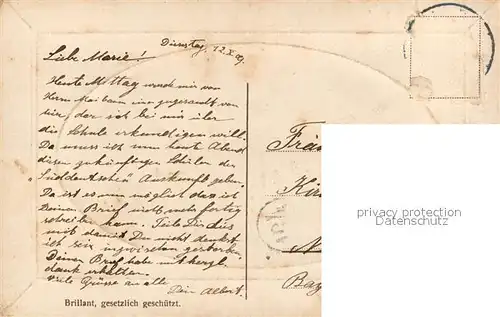 Dienstag, 12.X.09.
Liebe Marie!
Heute Mittag wurde mir von
Herrn Maibaum eine zugesandt von
dir, der sich bei mir über
die Schule erkundigen will.
Da muss ich nun heute Abend
diesen zukünftigen Schüler der
"Süddeutschen" Auskunft geben.
Da ist es nun möglich das ich
Deinen Brief nicht mehr fertig
schreiben kann. Teile Dir dies
mit damit Du nicht denkst
ich sei inzwischen gestorben.
Deinen Brief habe mit herzl.
dank erhalten.
viele Grüsse an alle
Dein Albert.
Brillant, gesetzlich geschützt.
privacy protection
watermark